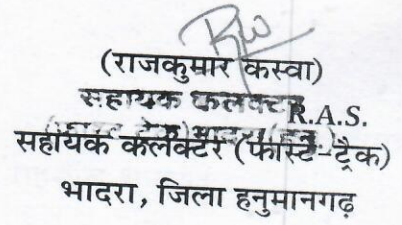 (राजकुमार कस्वा)
सहायक कलक्टर
R.A.S.
सहायक कलक्टर (फास्ट-ट्रैक)
भादरा, जिला हनुमानगढ़